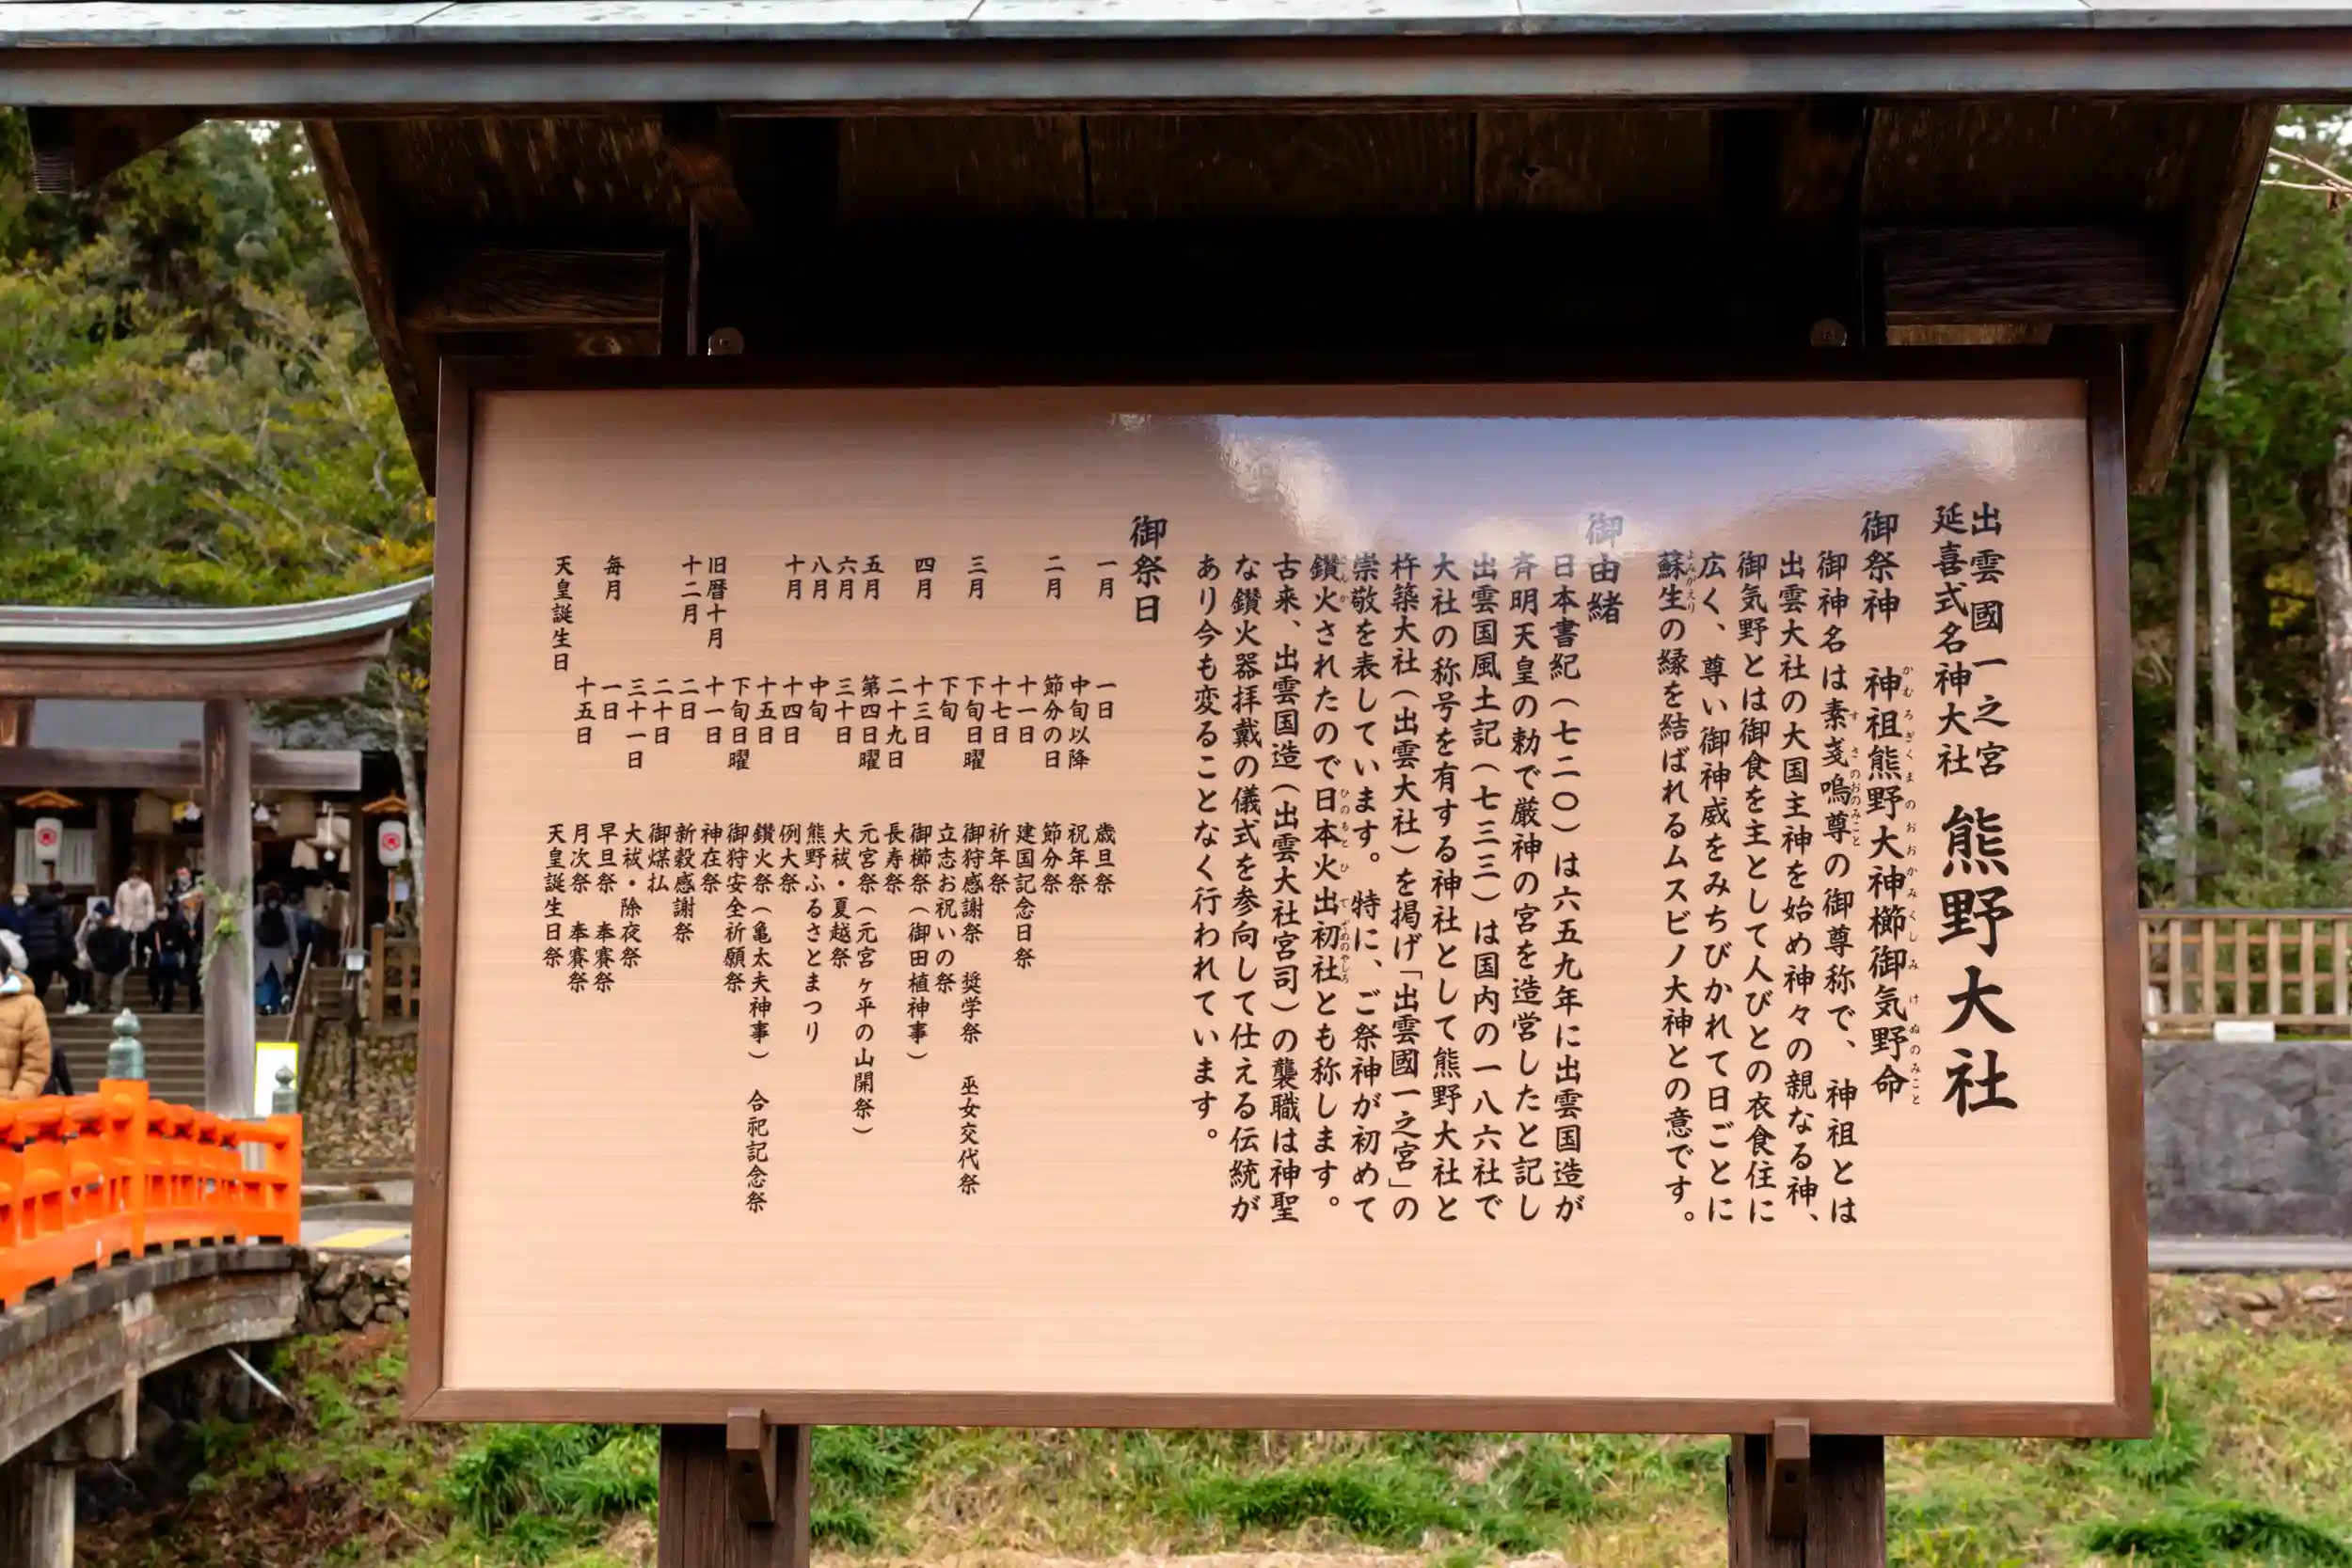 出雲國一之宮
延喜式名神大社
熊野大社
御祭神　神祖熊野大神櫛御気野命
かむろぎくまのおおかみくしみけぬのみこと
御神名は素戔嗚尊の御尊称で、神祖とは
すさのおのみこと
出雲大社の大国主神を始め神々の親なる神、
御気野とは御食を主として人びとの衣食住に
広く、尊い御神威をみちびかれて日ごとに
蘇生の縁を結ばれるムスビノ大神との意です。
よみがえり
御由緒
日本書紀（七二〇）は六五九年に出雲国造が
斉明天皇の勅で厳神の宮を造営したと記し
出雲国風土記（七三三）は国内の一八六社で
大社の称号を有する神社として熊野大社と
杵築大社（出雲大社）を掲げ「出雲國一之宮」の
崇敬を表しています。特に、ご祭神が初めて
鑽火されたので日本火出初社とも称します。
さんか　ひのもとひでぞめのやしろ
古来、出雲国造（出雲大社宮司）の襲職は神聖
な鑽火器拝戴の儀式を参向して仕える伝統が
あり今も変ることなく行われています。
御祭日
一月　一日　歳旦祭
中旬以降　祝年祭
二月　節分の日　節分祭
十一日　建国記念日祭
十七日　祈年祭
三月　下旬日曜　御狩感謝祭　奨学祭　巫女交代祭
下旬　立志お祝いの祭
四月　十三日　御櫛祭（御田植神事）
二十九日　長寿祭
五月　第四日曜　元宮祭（元宮ヶ平の山開祭）
六月　三十日　大祓・夏越祭
八月　中旬　熊野ふるさとまつり
十月　十四日　例大祭
十五日　鑽火祭（亀太夫神事）　合祀記念祭
下旬日曜　御狩安全祈願祭
旧暦十月　十一日　神在祭
十二月　二日　新穀感謝祭
二十日　御煤払
三十一日　大祓・除夜祭
毎月　一日　早旦祭　奉賽祭
十五日　月次祭　奉賽祭
天皇誕生日　天皇誕生日祭